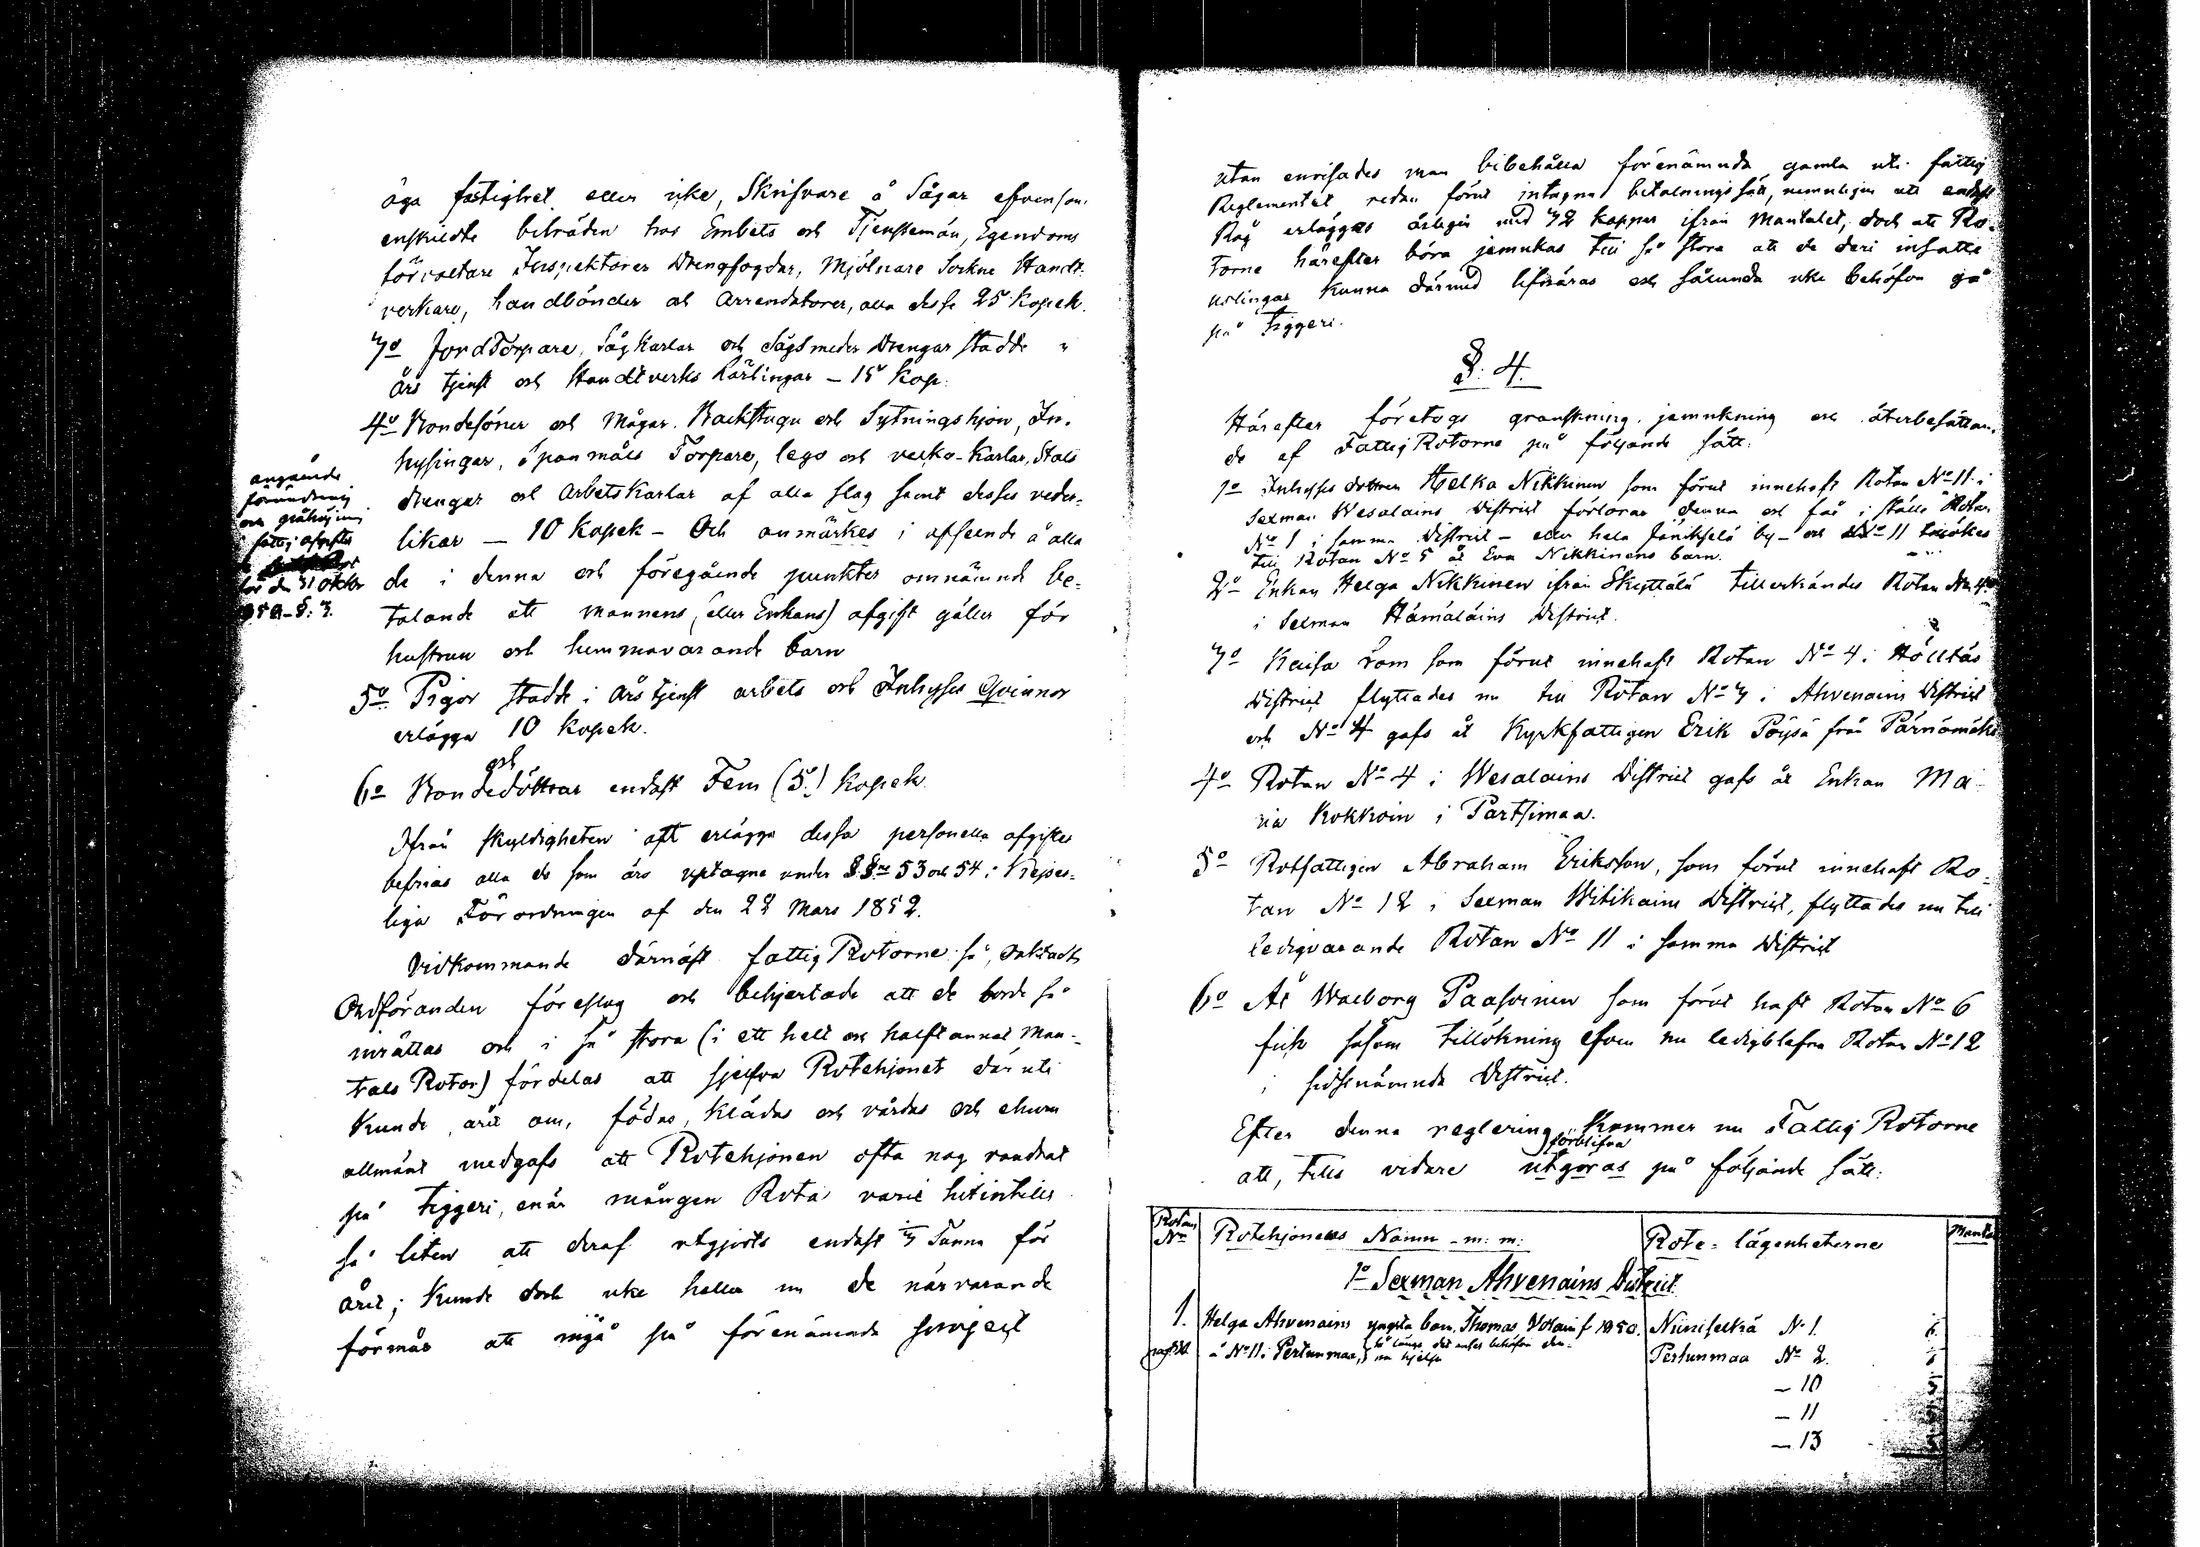 äga fastighet eller icke, Skrifvare å Sågar efvensom
enskildte biträden hos Embets och Tjenstemän, Egendoms
förvaltare Inspektorer Drengfogdar, Mjölnare Sockne Handt-
verkare, handlönder och Arrendatorer, alla desse 25 Kopek.
3o Jord Torpare, Sågkarlar och Sågsmeder Drengar stadde i
års tjenst och Handtverks Lärlingar – 15 Kop.
4o Bondesöner och Mågar. Backstugu och Sytningshjon, In-
hysingar, spanmåls Torpare, lego och vecko-Karlar, Stall
drengar och Arbetskarlar af alla slag samt desses veder-
likar — 10 Kopek – Och anmärkes i afseende å alla
de i denna och föregående punkter omnämnde be-
talande att mannens (eller Enkans) afgift gäller för
hustrun och hemmavarande barn
angående
förändring
och
fattig afgifter
för den 31 Oktbr
§. 3.
5o Pigor stadde i års tjenst arbets och Inhyses Qvinnor
erlägga 10 Kopek.
och
6o Bondedöttrar endast Fem (5.) Kopek.
Ifrån skyldigheten att erlägga dessa personella afgifter
befrias alla de som äro uptagne under §§ne 53 och 54 i Kejser-
liga Förordningen af den 22 Mars 1852.
Vidkommande därnäst fattig Rotorne så,
Ordföranden föreslog och behjertade att de borde så
inrättas och i så stora (i ett helt och halftannat Man-
tals Rotor) fördelas att sjelfva Rotehjonet däruti
Kunde, året om, födas, klädas och vårdas och ehuru
allmänt medgafs att Rotehjonen ofta nog vandrat
på tiggeri, enär mången Rota varit hitintills
så liten att deraf utgjorts endast Tunna för
året; Kunde dock icke heller nu de närvarande
förmås att ingå på förenämnda
utan envisades man bibehålla förenämnda gamla uti fattig
Reglementet redan förut intagna betalningssätt, nemnligen att endast
Råg erlägges årligen med 32 kappar ifrån Mantalet, doch att Ro-
torne härefter böra jemnkas till så stora att de deri insatte
uslingar kunna därmed lifnäras och sålunda icke behöfva gå
på Tiggeri.
§. 4.
Härefter företogs granskning, jemnkning och återbesättan-
de af Fattig Rotorne på följande sätt:
1o Inhyses dottren Helka Nikkinen som förut innehaft Rotan No 11 i
Sexman Wesalains District förlorar denna och får i ställe Rotan
No 1 i samma District – eller hela Jänikselä by – och No 11 tillökes
till Rotan No 5 åt Eva Nikkinens barn.
2o Enkan Helga Nikkinen ifrån Skyttälä tillerkändes Rotan No 4
i Sexman Hämäläins District.
3o Kaisa Rom som förut innehaft Rotan No 4 i Hölttäs
District flyttades nu till Rotan No 3 i Ahvenains District
och No 4 gafs åt Kyrkfattigen Erik Pöysä från Pärnämäki
4o Rotan No 4 i Wesalains District gafs åt Enkan Ma-
ria Kokkoin i Partsimaa.
5o Rotfattigen Abraham Eriksson, som förut innehaft Ro-
tan No 12 i Sexman Witikains District, flyttades nu till
ledigvarande Rotan No 11 i samma District
6o Åt Walborg Paasoinen som förut haft Rotan No 6
fick såsom tillökning äfven nu ledigblefne Rotan No 12
i sidstnämnda District.
Efter denna reglering, Kommer nu Fattig Rotorne
förblifva
att, tills vidare utgöras på följande sätt:
Rotans No Rotehjonens Namn m. m. Rote-lägenheterne Mantal
1o Sexman Ahvenains District
1. Helga Ahvenains yngsta barn, Thomas f 1850. Niiniselkä No 1.
å No 11 i Pertunmaa, så länge det anses behöfva den- Pertunmaa No 2.
na hjelp
– 10
– 11
– 13